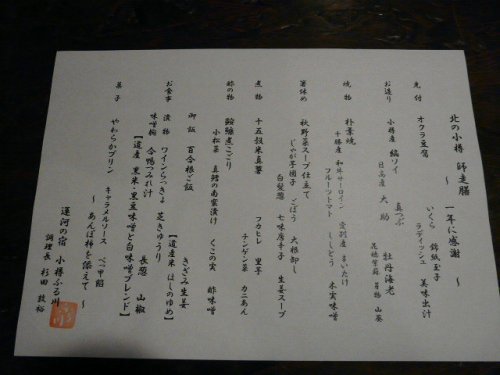 北の小樽 師走膳 〜 一年に感謝 〜
先付
オクラ豆腐
いくら 錦紙玉子
ラディッシュ 美味出汁
お造り
小樽産 編ソイ 真つぶ 牡丹海老
日高産 大助 花穂紫蘇 若布 山葵
焼物
朴葉焼
十勝産 和牛サーロイン 愛別産 まいたけ
フルーツトマト ししとう 木実味噌
箸休め
秋野菜スープ仕立て
じゃが芋団子 ごぼう 大根卸し
白髪葱 七味唐辛子 生姜スープ
煮物
十五穀米真薯 フカヒレ 里芋
チンゲン菜 カニあん
酢の物
鮟鱇煮こごり
小松菜 真鱈の南蛮漬け くこの実 酢味噌
お食事
御飯 百合根ご飯 【道産米ほしのゆめ】
漬物 ワインらっきょ 芝きゅうり きざみ生姜
味噌椀 合鴨つみれ汁 長葱 山椒
【道産 黒米・黒豆味噌と白味噌ブレンド】
菓子
やわらかプリン キャラメルソース べつ甲飴
〜 あんぽ柿を添えて 〜
運河の宿 小樽ふる川
調理長 杉田 敦裕